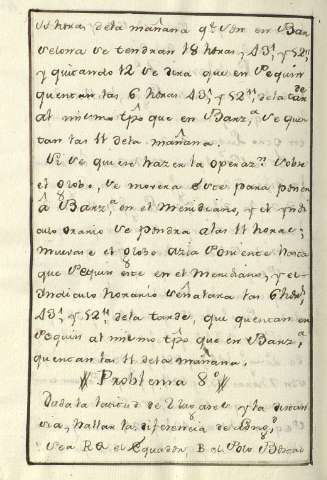 11 horas dela mañana qe son en Bar
zelona se tendran 18 horas, 43' y 52'',
y quitando 12 se dira que en Pequin
quentan las 6 horas 43' y 52'' de la tarde
al mismo tpo que en Barza se quen
tan las 11 dela mañana.
Si se quiere hazer la operazn sobre
el Globo, se movera este para poner
â Barza en el Meridiano, y el yndi
culo orario se pondra alas 11 horas;
muevase el globo azia Poniente hasta
que Pequin este en el Meridiano, y el
Yndiculo horario señalara las 6 hors,
43' y 52'' dela tarde, que quentan en
Pequin al mismo tpo que en Barza,
quentan las 11 dela mañana.
Problema 8º
Dada la latitud de dos lugares y la distan
cia, hallar la diferencia de Longd
Sea el Equador B el Polo Boreal